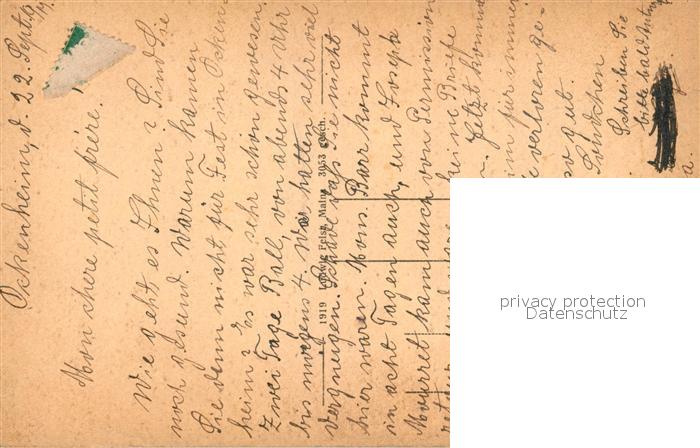 Ockenheim, d. 22. Sept. 19
Mon chere petit piére.
Wie geht es Ihnen? Sind Sie
noch gesund. Warum kamen
Sie denn nicht für Fest in Ocken-
heim? Es war sehr schön gewesen.
Zwei Tage Ball, von abends 4 Uhr
bis morgens 4. Wir hatten sehr viel
Vergnügen. Schade daß Sie nicht
hier waren. Mons. Baar kommt
in acht Tagen auch, und Joseph
Mourret kam auch von Permission
keine Briefe
Jetzt komm
für immer
verloren ge-
so gut.
Schreiben Sie
bitte bald Antw.
1919 Ludwig Felst, Mainz 3053 gesch.
privacy protection
Datenschutz